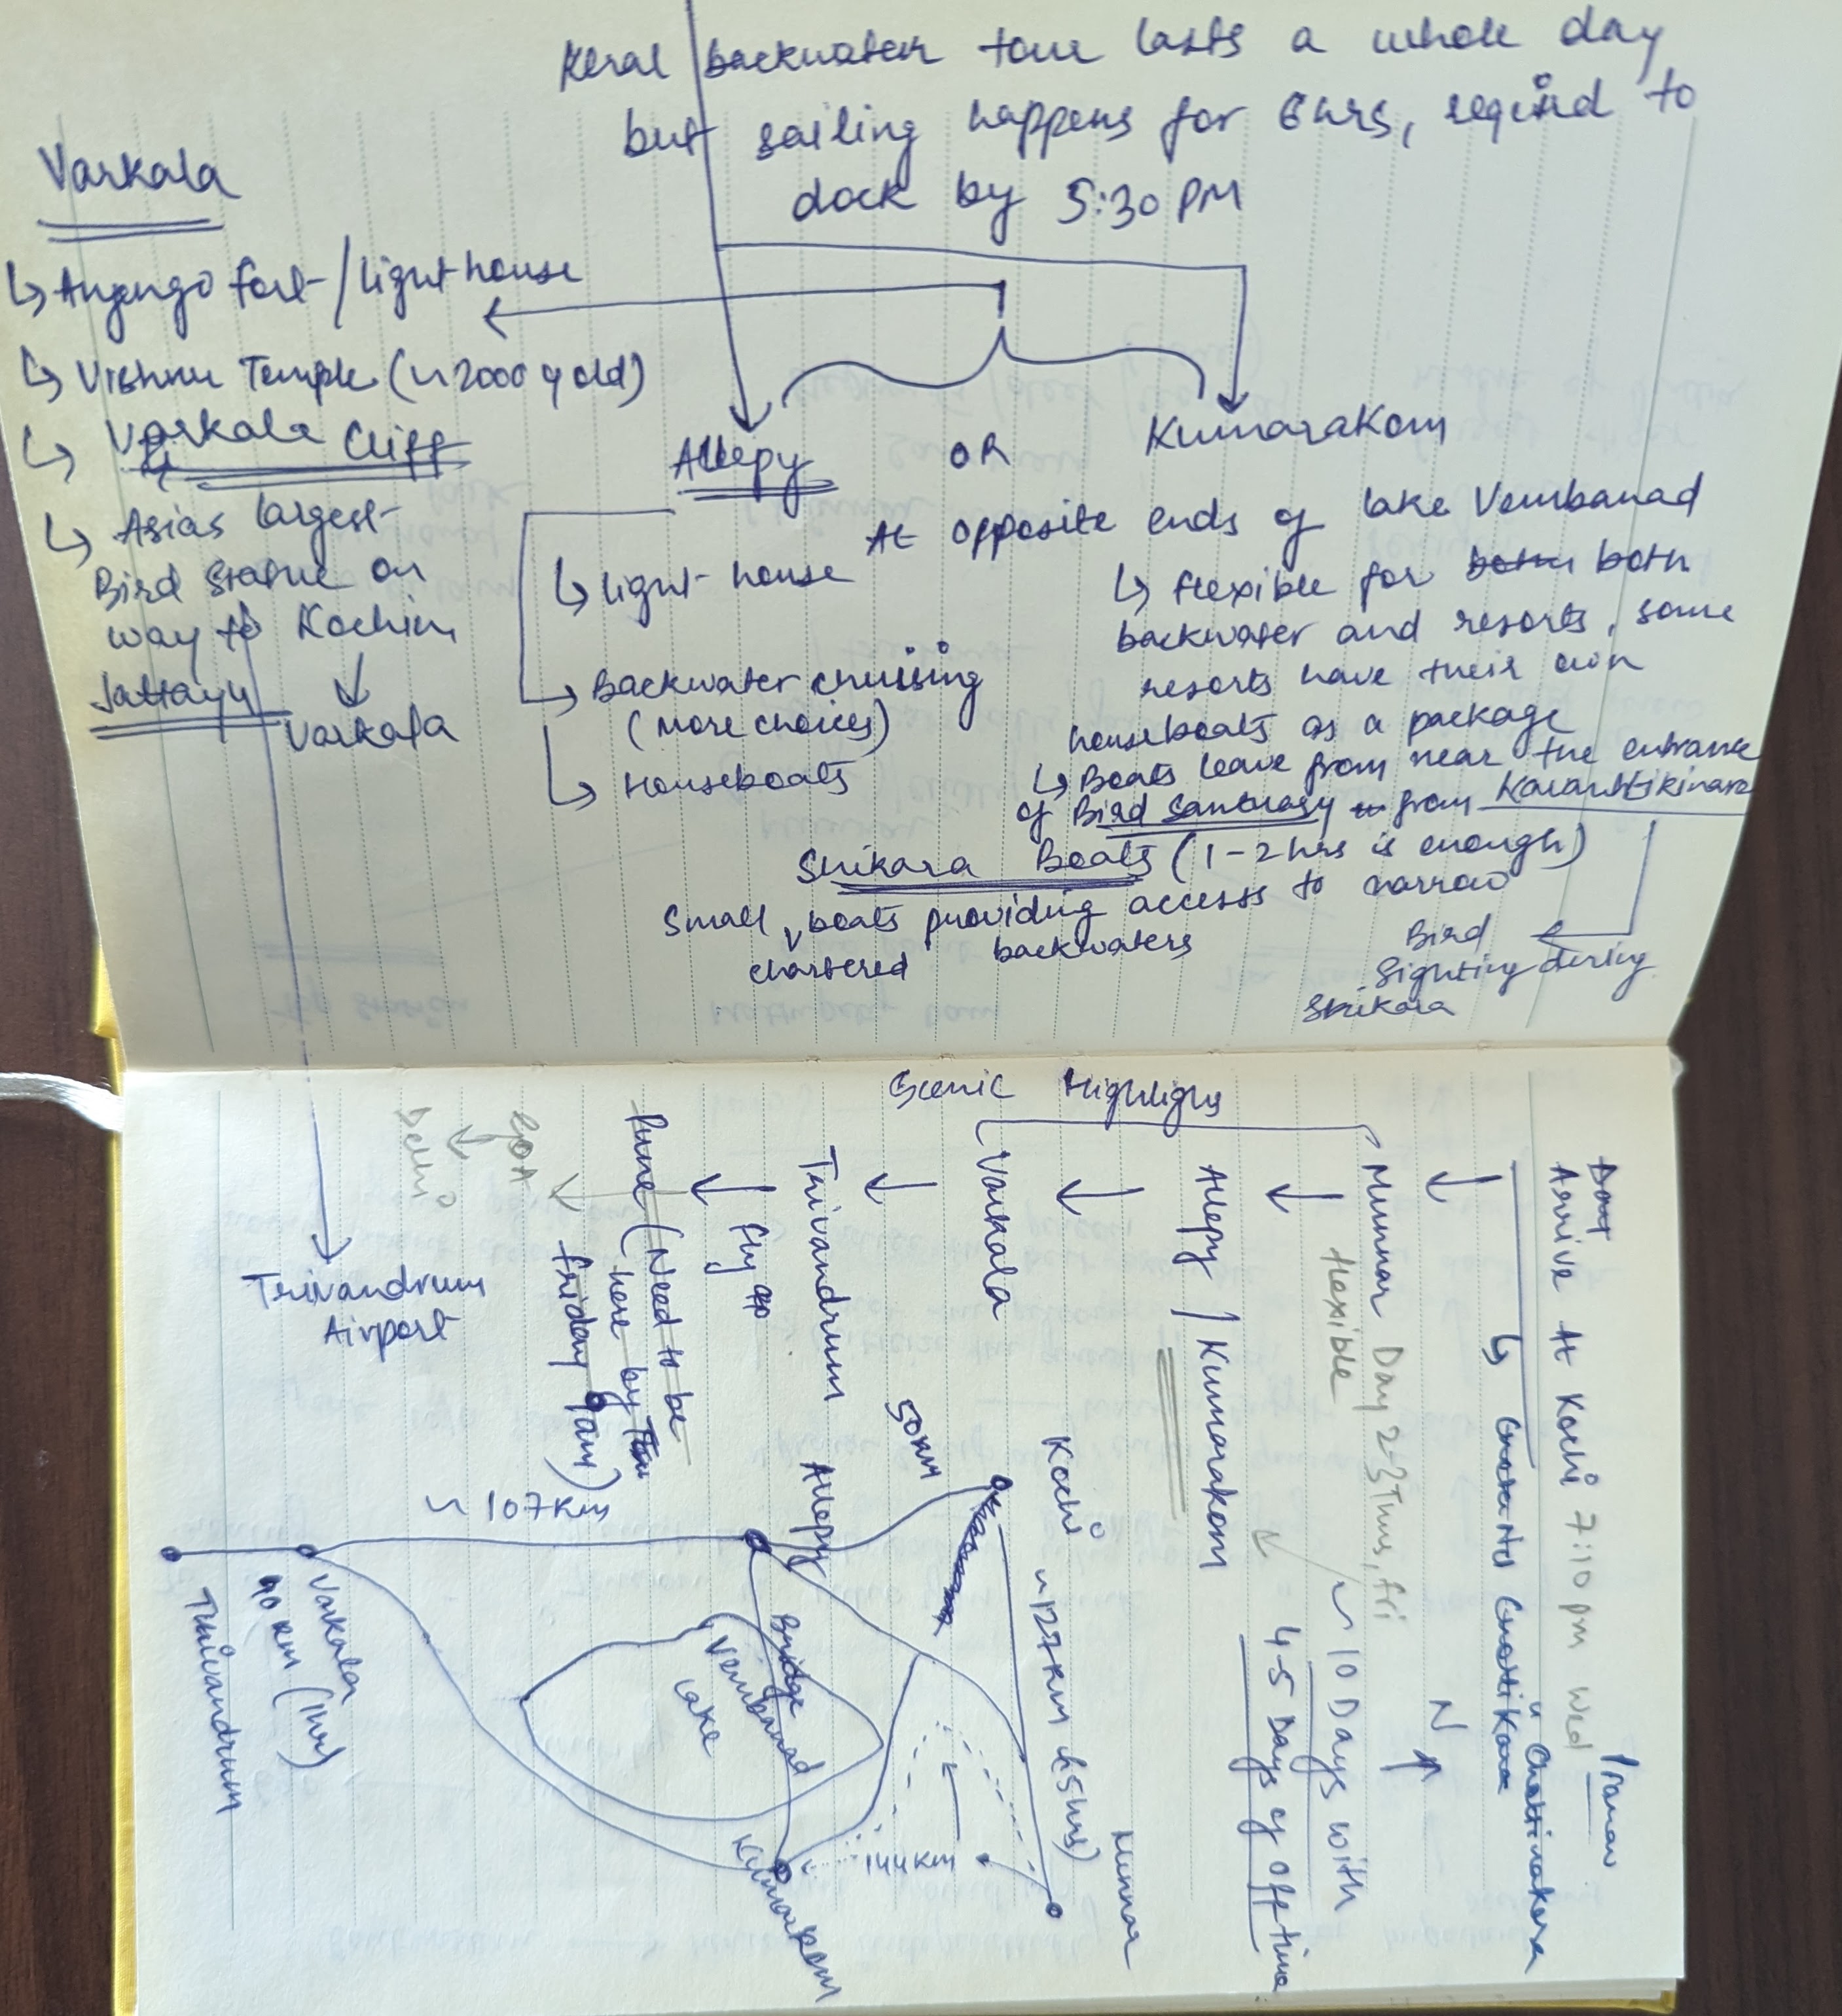 Keral backwater tour lasts a whole day
but sailing happens for 6 hrs, requird to
dock by 5:30 PM
Varkala
↳ Anjengo fort / Light house
↳ Vishnu Temple (~ 2000 y old)
↳ Varkala Cliff
↳ Asias largest
Bird Statue on
way to Kochin
Jattayu
↓
Varkala
Allepy OR Kumarakom
At opposite ends of lake Vembanad
↳ light house
↳ Backwater cruising
(more choices)
↳ Houseboats
↳ flexible for both both
backwater and resorts, some
resorts have their own
houseboats as a package
↳ Boats leave from near the entrance
of Bird Santuary from Kavanattikinara
Shikara Boats (1-2 hrs is enough)
Small chartered boats providing accesss to narrow
backwaters
Bird
Sighting during
Shikara
Scenic Highlighs
Day
Arrive At Kochi 7:10 pm Wed
Munnar Day 2-3 Thus, fri
flexible
Allepy / Kumarakom
Varkala
Trivandrum
fly to
Pune (Need to be
here by
friday 9am)
GOA
Delhi
Trivandrum
Airport
~ 10 Days with
4-5 Days of off time
N
Kochi ~127 km (~5hrs) Munnar
50km
Allepy
~ 107 km
Bridge
Vembanad
Lake
144 km
Kumarakom
Varkala
40 km (1hr)
Thivandrum